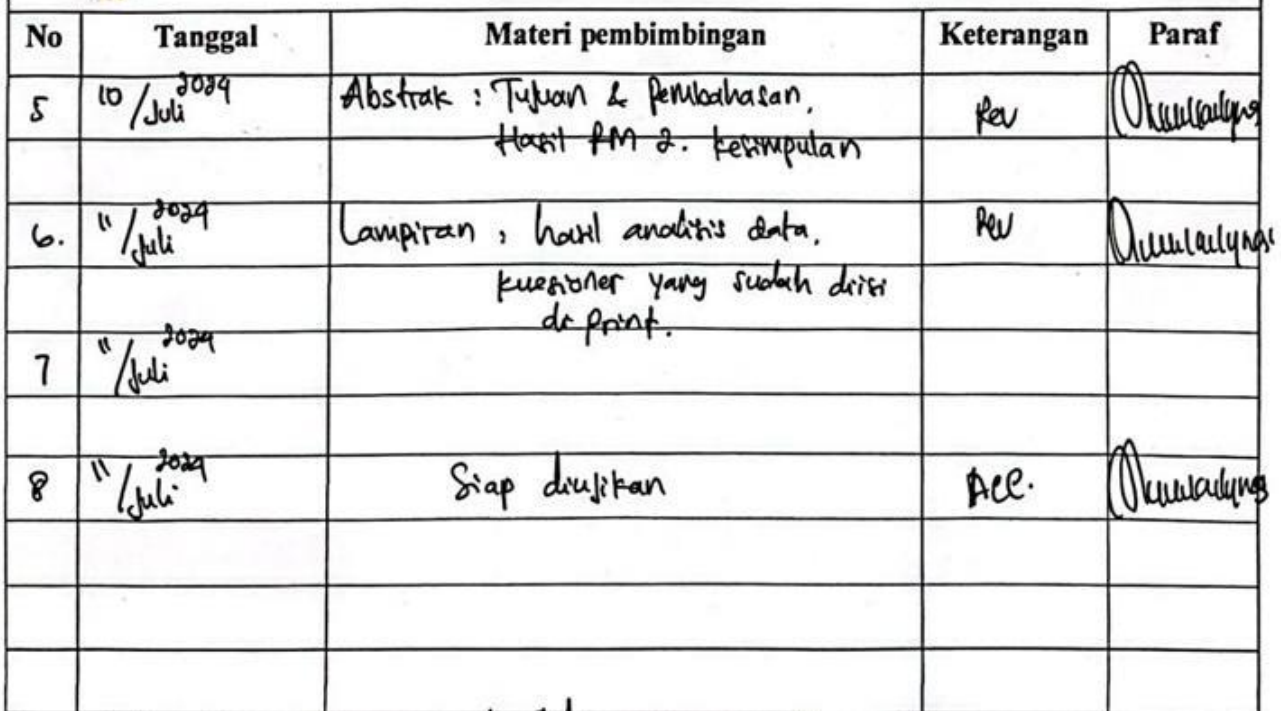 No Tanggal Materi pembimbingan Keterangan Paraf
5 10/Juli 2024 Abstrak : Tujuan & Pembahasan, Rev
Hasil RM 2. Kesimpulan
6. 11/Juli 2024 Lampiran , hasil analisis data, Rev
kuesioner yang sudah diisi
di print.
7 11/Juli 2024
8 11/Juli 2024 Siap diujikan ACC.